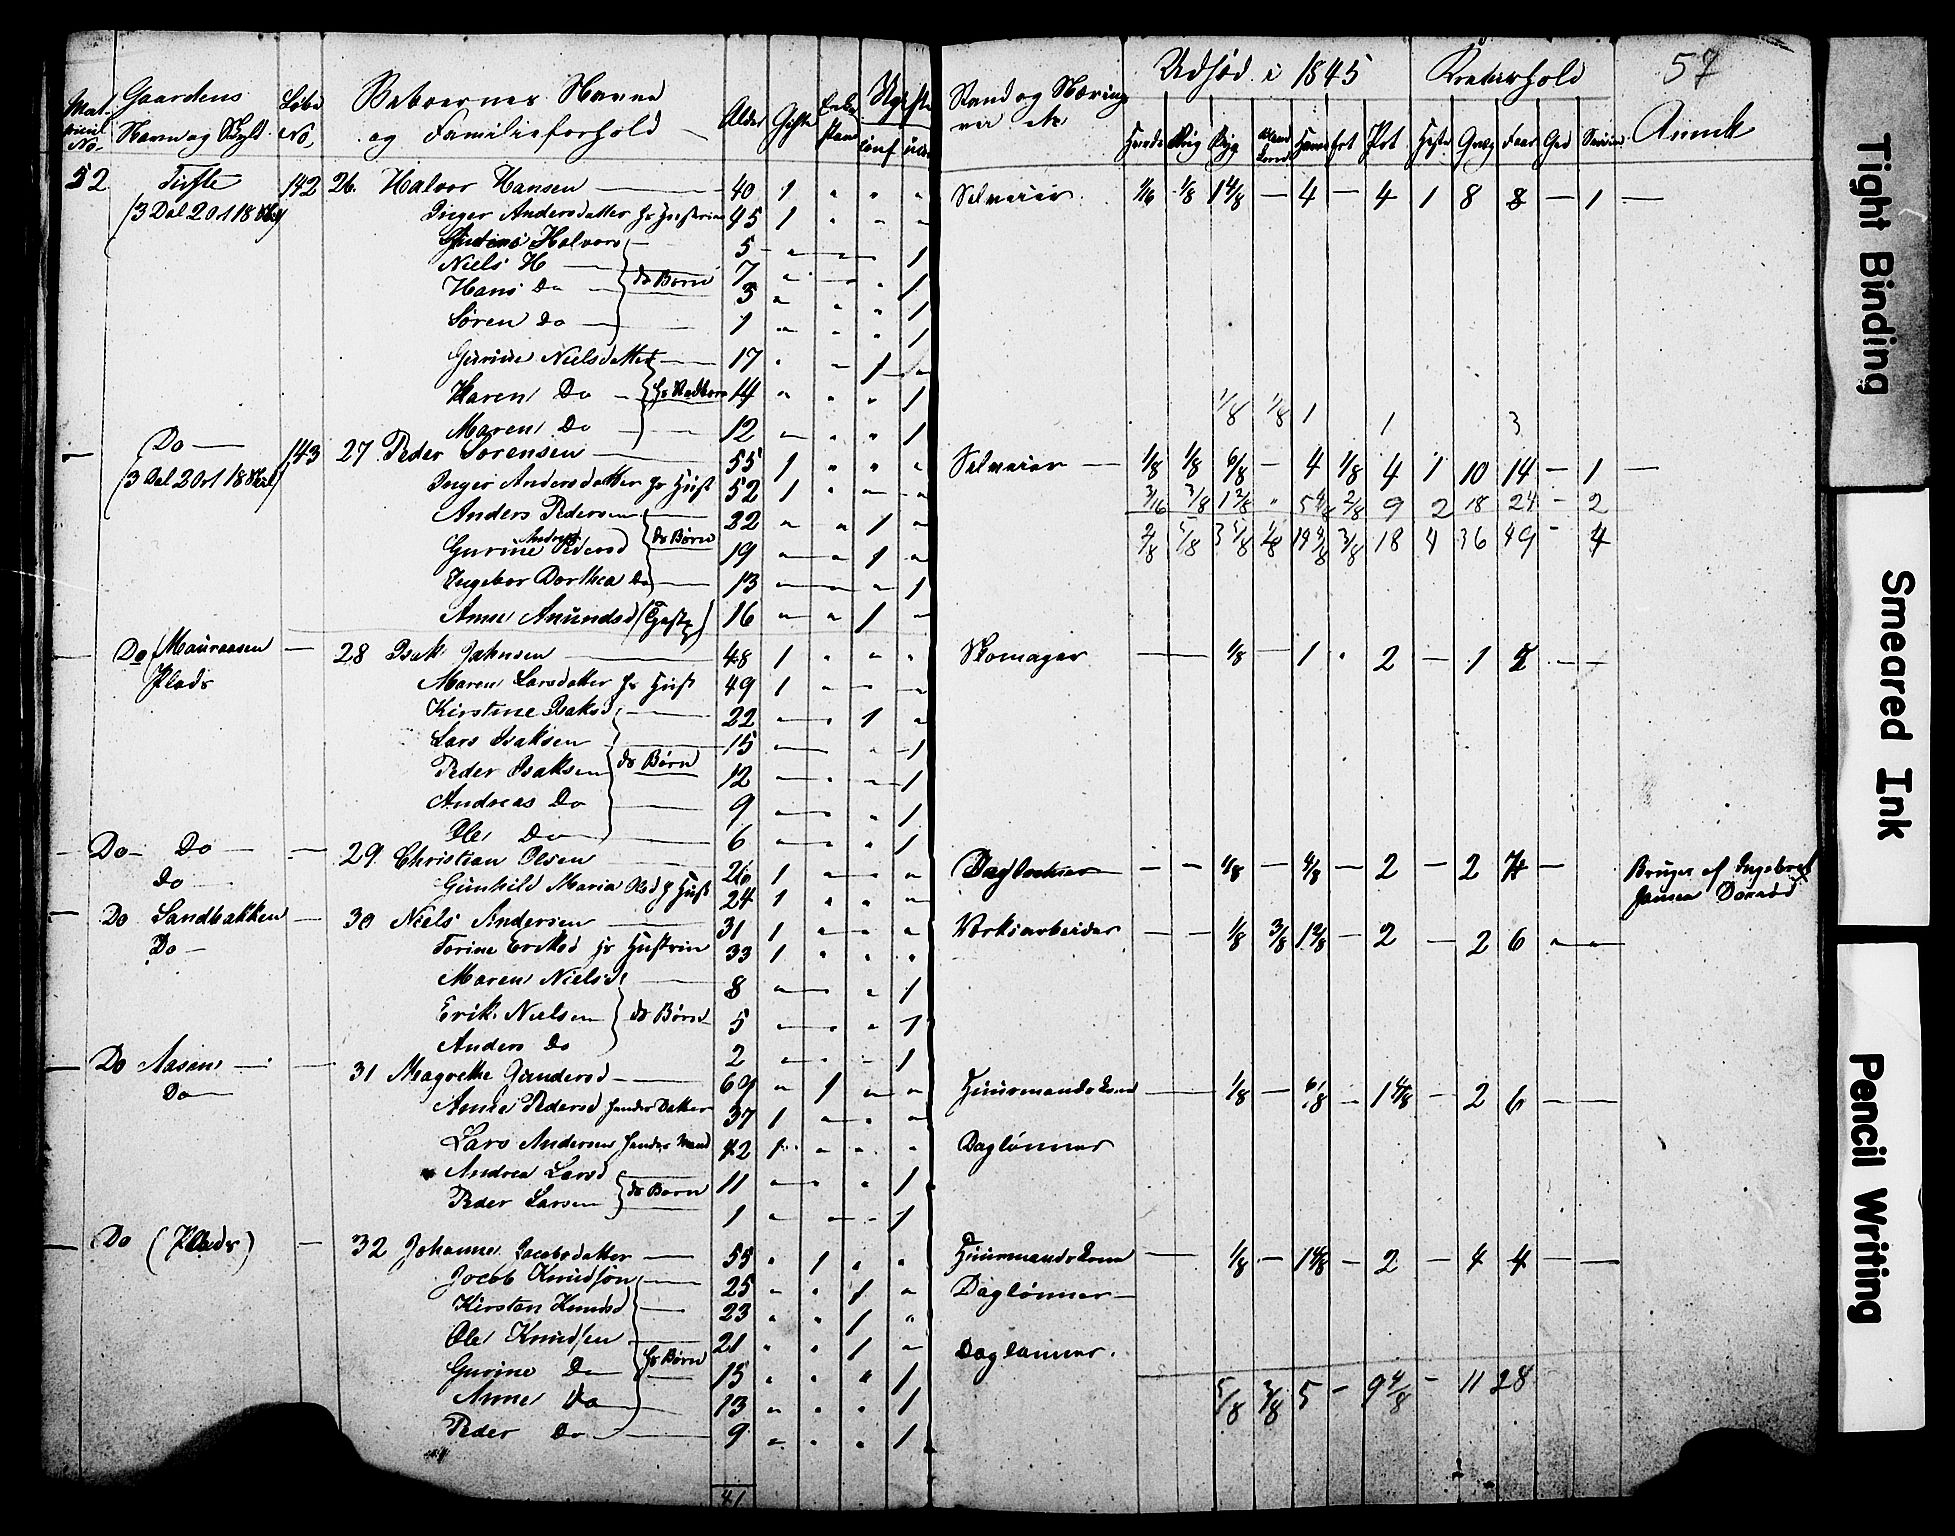 57
Udsæd i 1845 Kreaturhold
Mat. No. Gaardens Navn og Skyld Løbe No. Beboernes Navne og Familieforhold Alder Gifte Enke stand Ugifte conf. ucon Stand og Næring Hvede Rug Byg Bland Korn Havre Ert Pot Heste Qvæg Faar Ged Sviin Anmk
52 Tufte 142 26 Halvor Hansen — 40 1 " " " Selveier 1/6 1/8 1 4/8 — 4 — 4 1 8 8 — 1 —
(3 Dal 2 Ort 18 Sk) Inger Andersdatter hs Hustrue 45 1
Halvors 5 1
Niels H — 7 1
Hans Do 3 1
do Børn
Søren Do — 1 1
Gurine Nielsdatter 17 1
Karen Do 14 1
1/8 1/8 1 1 3
Maren Do 12 1
Do — 143 27 Peder Sørensen — 55 1 " " " Selveier — 1/8 1/8 6/8 — 4 1/8 4 1 10 14 — 1 —
(3 Dal 2 Ort 18 Skil) Inger Andersdatter hs Hust 52 1
3/16 3/8 1 2/8 " 5 4/8 2/8 9 2 18 24 — 2
Anders Pedersen 22 1
do Børn
Gurine Andrea Pedersd 19 1
2/8 5/8 3 5/8 1/8 19 4/8 3/8 18 4 36 49 — 4
Ingebor Dorthea Do 13 1
Anne Amundsd 16 1
Do (Mauraasen — 28 Isak Jahnsen — 48 1 " " " Skomager — 1/8 — 1 " 2 — 1 — —
Plads Maren Larsdatter hs Hust 49 1
Kirstine Isaksd 22 1
Lars Isaksen 15 1
do Børn
Peder Isaksen 12 1
Andreas Do 9 1
Ole Do 6 1
Do — Do — 29 Christian Olsen — 26 1 Daglønner — — 4/8 — 4/8 — 2 — 2 — Bruges af Ingebret
Do Gunhild Maria hs Hust 24 1 Jansen
Do Sandbakken — 30 Niels Andersen — 31 1 Verksarbeider — — 1/8 3/8 1 2/8 — 2 — 2 6 — —
Do — Torine Eriksd hs Hustrue 33 1
Maren Nielsd 8 1
Erik Nielsen 5 1
do Børn
Anders Do 2 1
Do Aasen — 31 Magrethe Gundersd — 69 1 Huusmandskone — 1/8 — 6/8 — 1 4/8 — 2 6 — —
Do — Anne Pedersd hendes Datter 37 1
Lars Andersen hendes Mand 42 1 Daglønner
Andrea Larsd 11 1
do Børn
Peder Larsen 1 1
Do (Plads) — 32 Johanne Jacobsdatter — 55 1 Huusmandskone — 1/8 — 1 4/8 — 2 — 4 4 — —
Jacob Knudsøn 25 1 Daglønner —
Kirsten Knudsd 23 1
Ole Knudsen 21 1 Daglønner
hs Børn
Gurine Do 15 1
5/8 3/8 5 — 9 4/8 — 11 28
Anne Do 13 1
Peder Do 9 1
41
Tight Binding
Smeared Ink
Pencil Writing